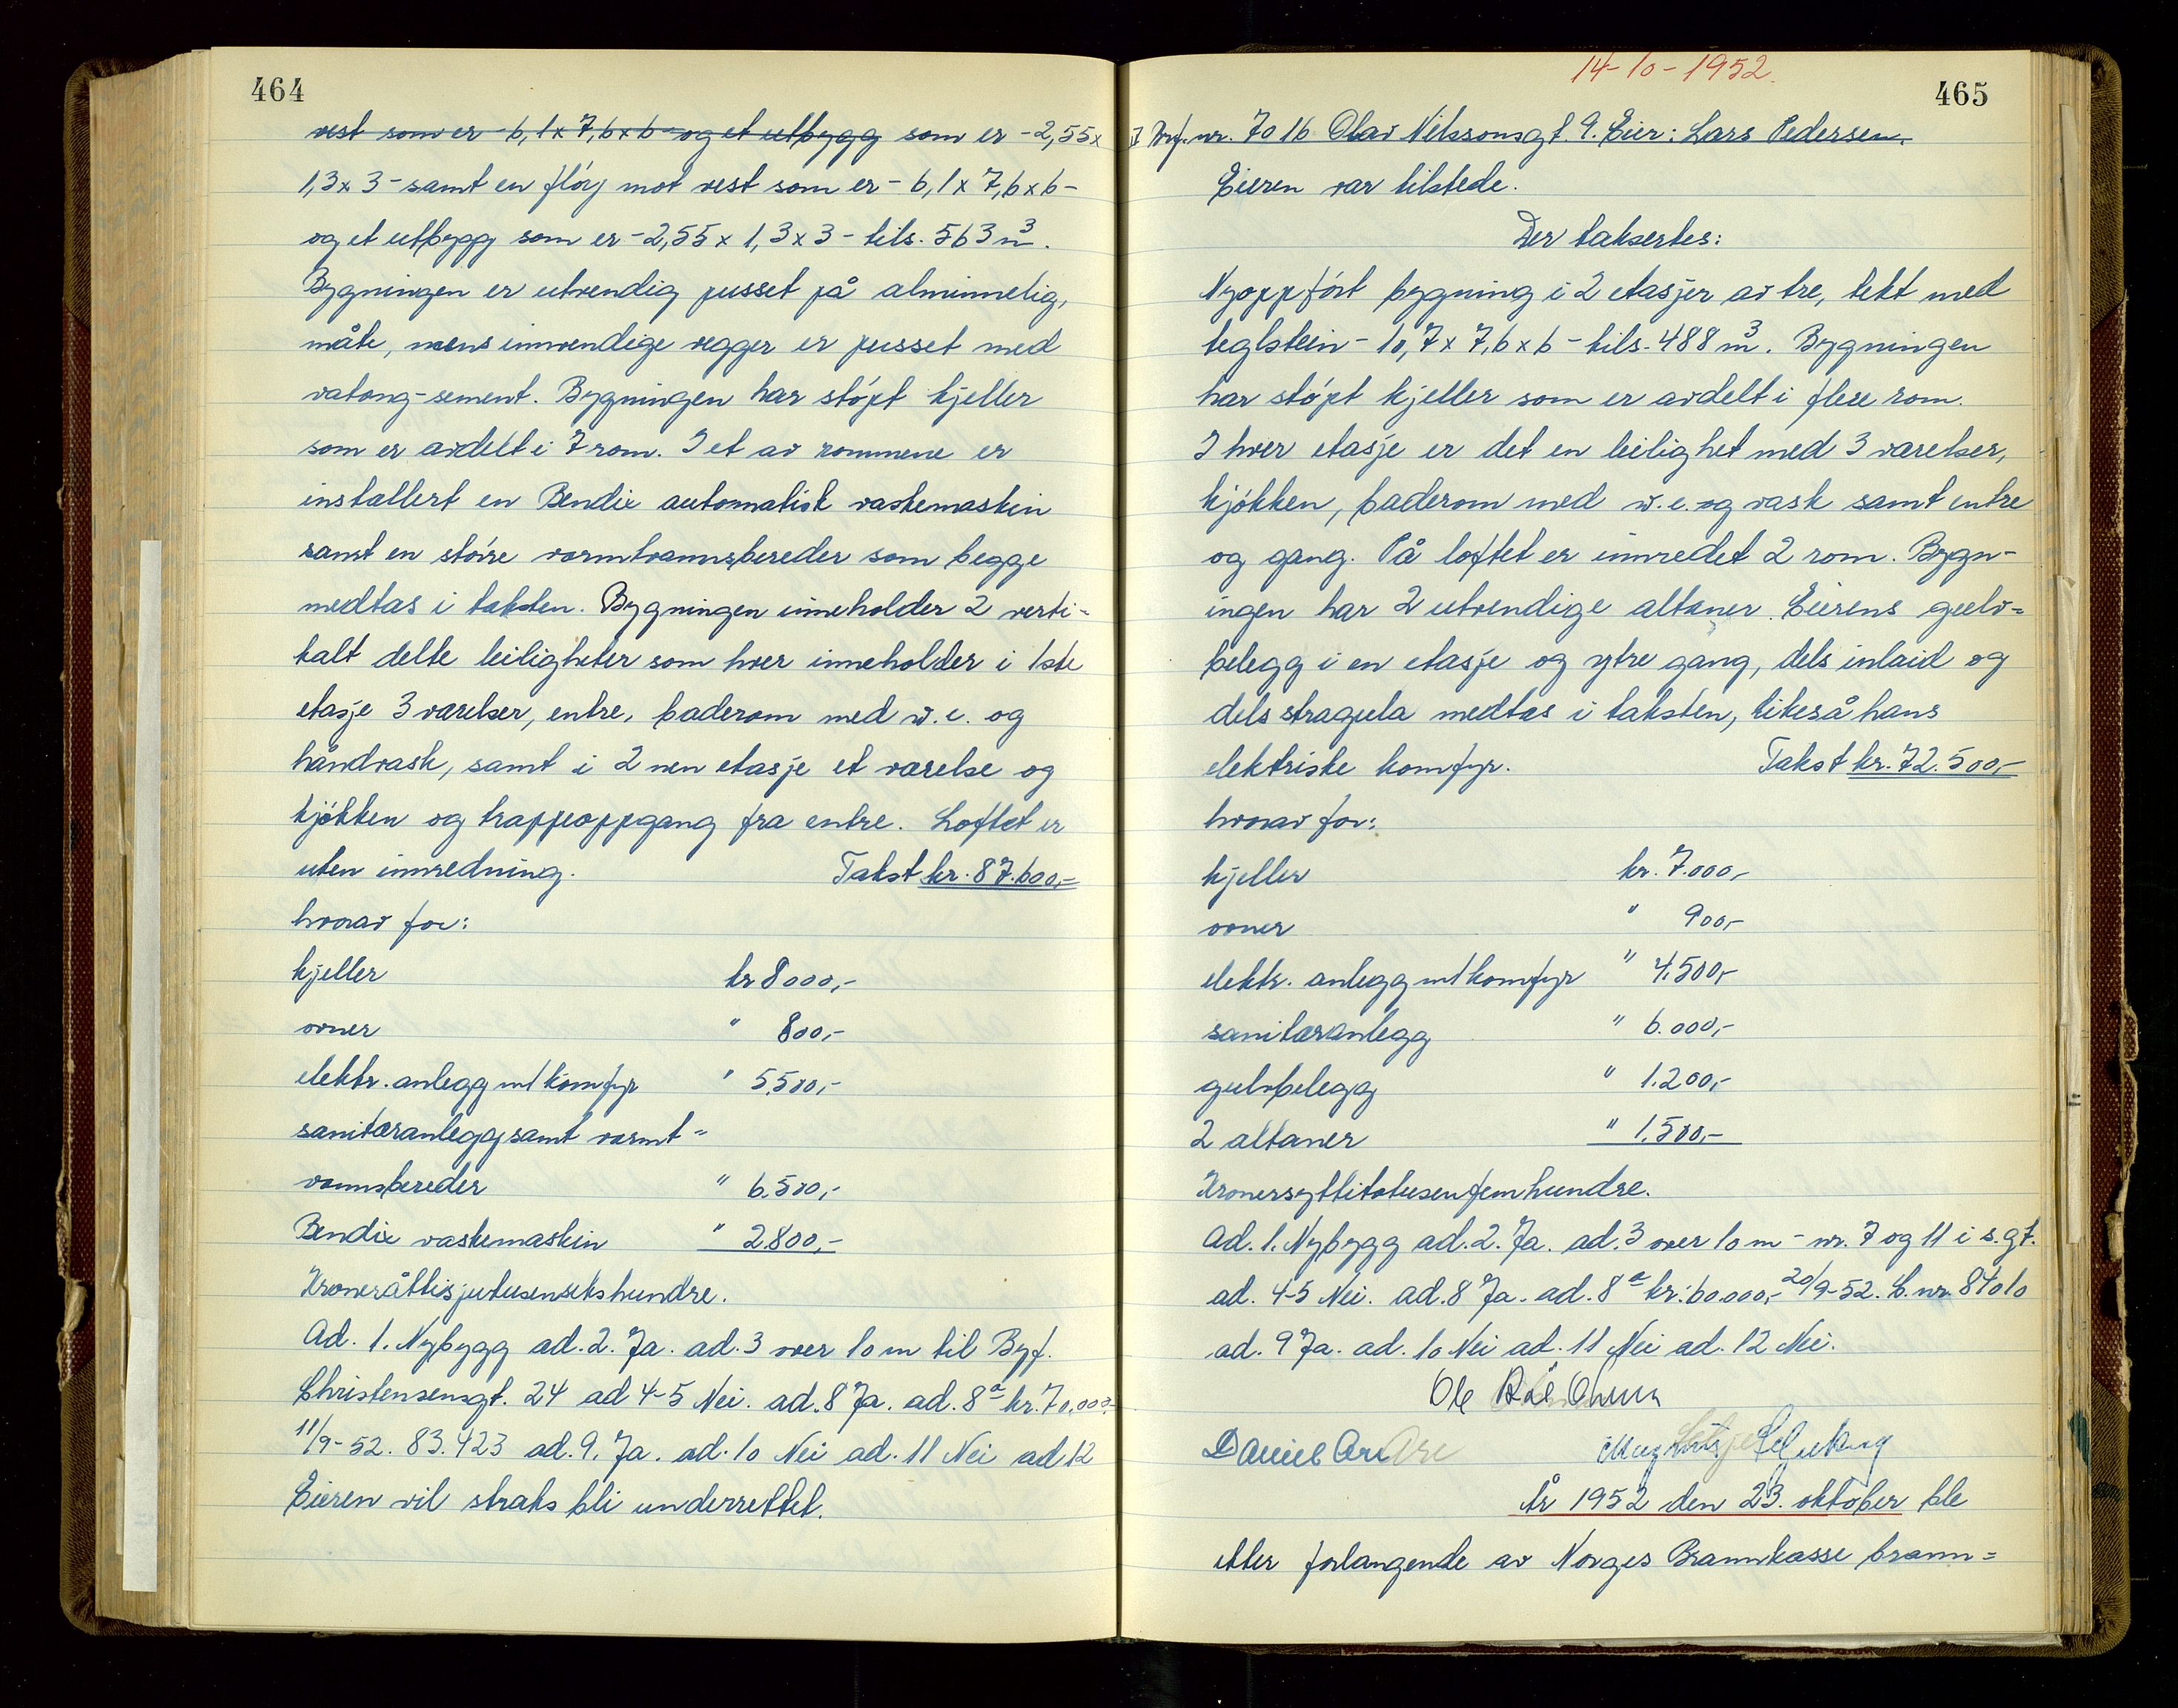 464
vest som er - 6,1 x 7,6 x 6 - og et utbygg som er - 2,55 x
1,3 x 3 - samt en fløy mot vest som er - 6,1 x 7,6 x 6 -
og et utbygg som er - 2,55 x 1,3 x 3 - tils. 563 m³.
Bygningen er utvendig pusset på alminnelig,
måte, mens innvendige vegger er pusset med
vatong-sement. Bygningen har støpt kjeller
som er avdelt i 7 rom. I et av rommene er
installert en Bendix automatisk vaskemaskin
samt en større varmtvannsbereder som begge
medtas i taksten. Bygningen inneholder 2 verti=
kalt delte leiligheter som hver inneholder i 1ste
etasje 3 værelser, entre, baderom med w.c. og
håndvask, samt i 2 nen etasje et værelse og
kjøkken og trappeoppgang fra entre. Loftet er
uten innredning. Takst kr. 87.600,-
hvorav for:
kjeller kr 8000,-
ovner " 800,-
elektr. anlegg m/komfyr " 5.500,-
sanitæranlegg samt varmt=
vannsbereder " 6.500,-
Bendix vaskemaskin " 2.800,-
Kroneråttisjutusensekshundre.
Ad. 1. Nybygg ad. 2. Ja. ad. 3 over 10 m til Byf.
Christensensgt. 24 ad 4-5 Nei. ad. 8 Ja. ad. 8ᵃ kr. 70.000.-
11/9-52. 83.423 ad. 9. Ja. ad. 10 Nei ad. 11 Nei ad 12
Eieren vil straks bli underrettet.
14-10-1952.
465
Brf. nr. 7016 Olav Nilssonsgt. 9. Eier: Lars Pedersen.
Eieren var tilstede.
Der takstertes:
Nyoppført bygning i 2 etasjer av tre, tekt med
teglstein - 10,7 x 7,6 x 6 - tils. 488 m³. Bygningen
har støpt kjeller som er avdelt i flere rom.
I hver etasje er det en leilighet med 3 værelser,
kjøkken, baderom med w.c. og vask samt entre
og gang. På loftet er innredet 2 rom. Bygn-
ingen har 2 utvendige altaner. Eierens gulv=
belegg i en etasje og ytre gang, dels inlaid og
dels stragula medtas i taksten, likeså hans
elektriske komfyr. Takst kr. 72.500,-
hvorav for:
kjeller kr. 7.000,-
ovner " 900,-
elektr. anlegg m/komfyr " 4.500,-
sanitæranlegg " 6.000,-
gulvbelegg " 1.200,-
2 altaner " 1.500,-
Kronersyttitotusenfemhundre.
Ad. 1. Nybygg ad. 2. Ja. ad. 3 over 10 m - nr. 7 og 11 i s.gt.
ad. 4-5 Nei. ad. 8 Ja. ad. 8ᵃ kr: 60.000,- 20/9-52. L. nr. 84010
ad. 9 Ja. ad. 10 Nei ad. 11 Nei ad. 12 Nei.
Ole
Daniel
År 1952 den 23. oktober ble
etter forlangende av Norges Brannkasse brann=